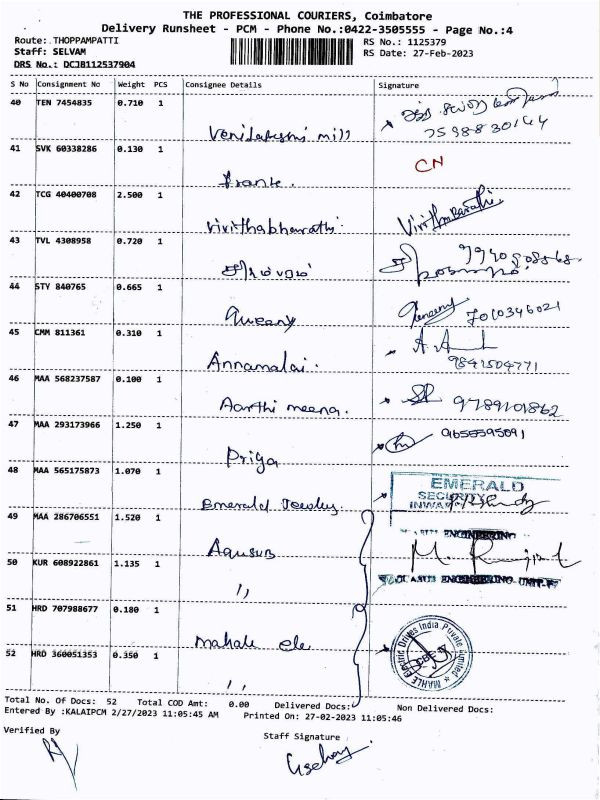 THE PROFESSIONAL COURIERS, Coimbatore
Delivery Runsheet - PCM - Phone No.:0422-3505555 - Page No.:4
Route: THOPPAMPATTI RS No.: 1125379
Staff: SELVAM RS Date: 27-Feb-2023
DRS No.: DCJB112537904
S No Consignment No Weight PCS Consignee Details Signature
40 TEN 7454835 0.710 1
Venilakshmi mill 7598830144
41 SVK 60338286 0.130 1
CN
42 TCG 40400708 2.500 1
Vivithabharathi
43 TVL 4308958 0.720 1
44 STY 840765 0.665 1
Queeny 7010346021
45 CMM 811361 0.310 1
Annamalai. 9841504771
46 MAA 568237587 0.100 1
Aarthi meena. 9789101862
47 MAA 293173966 1.250 1
Priya 9655595091
48 MAA 565175873 1.070 1
EMERALD
SECURITY
INWARD
Emerald
49 MAA 286706551 1.520 1
ENGINEERING
50 KUR 608922861 1.135 1
ENGINEERING UNIT
"
51 HRD 707988677 0.180 1
Mahale ele
52 HRD 360051353 0.350 1
MAHLE Electric Drives India Private Limited
"
Total No. Of Docs: 52 Total COD Amt: 0.00 Delivered Docs: Non Delivered Docs:
Entered By :KALAIPCM 2/27/2023 11:05:45 AM Printed On: 27-02-2023 11:05:46
Verified By Staff Signature